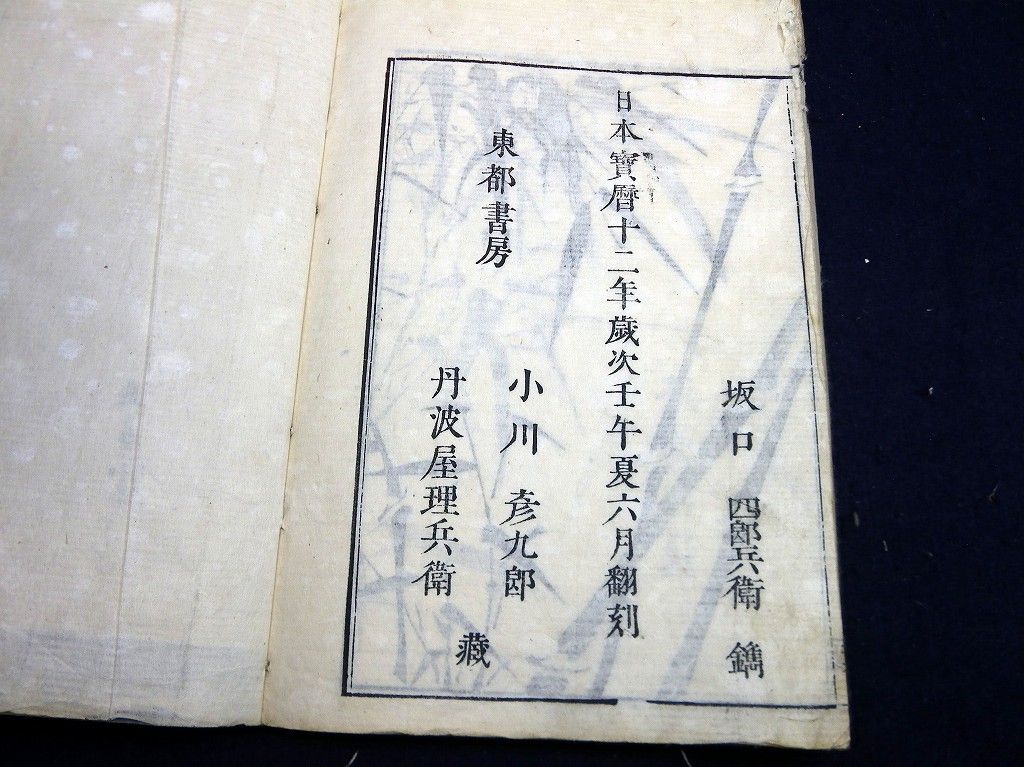 坂口 四郎兵衛 鐫
日本寶曆十二年歲次壬午夏六月翻刻
東都書房
小川 彦九郎
丹波屋理兵衛
藏